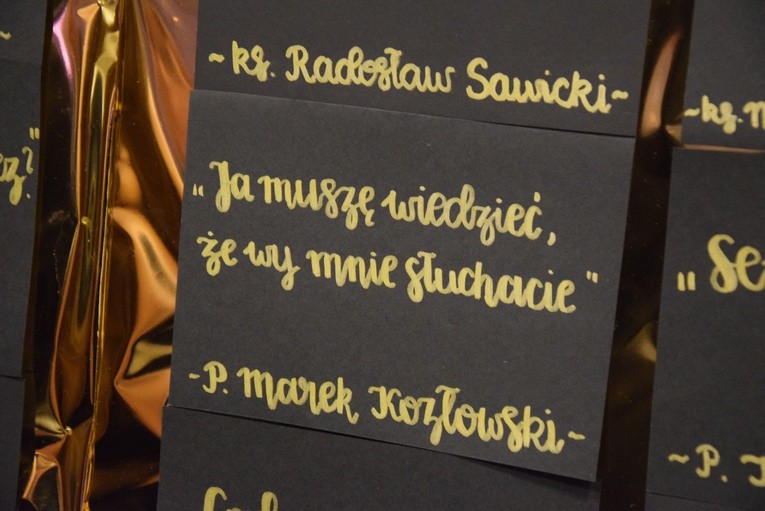 ~ ks. Radosław Sawicki ~
„Ja muszę wiedzieć,
że wy mnie słuchacie"
~ P. Marek Kozłowski ~
~ ks.
~ P.